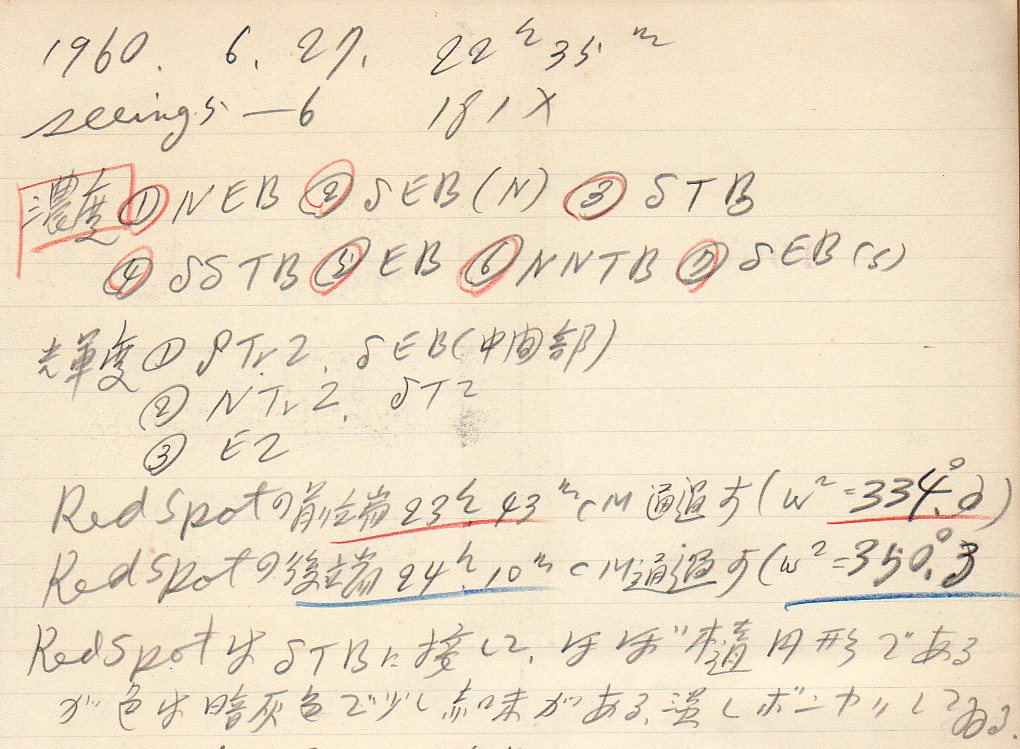 1960. 6. 27. 22h35m
seeing 5—6 181X
濃度 ① NEB ② SEB(N) ③ STB
④ SSTB ⑤ EB ⑥ NNTB ⑦ SEB(S)
光輝度 ① STrZ. SEB(中間部)
② NTrZ. STZ
③ EZ
Red Spotの前端 23h.43m CM通過す(w²=334.°2)
Red Spotの後端 24h.10m CM通過す(w²=350.°3
Red SpotはSTBに接して、ほぼ楕円形である
が色は暗灰色で少し赤味がある、 ボンヤリしてゐる.